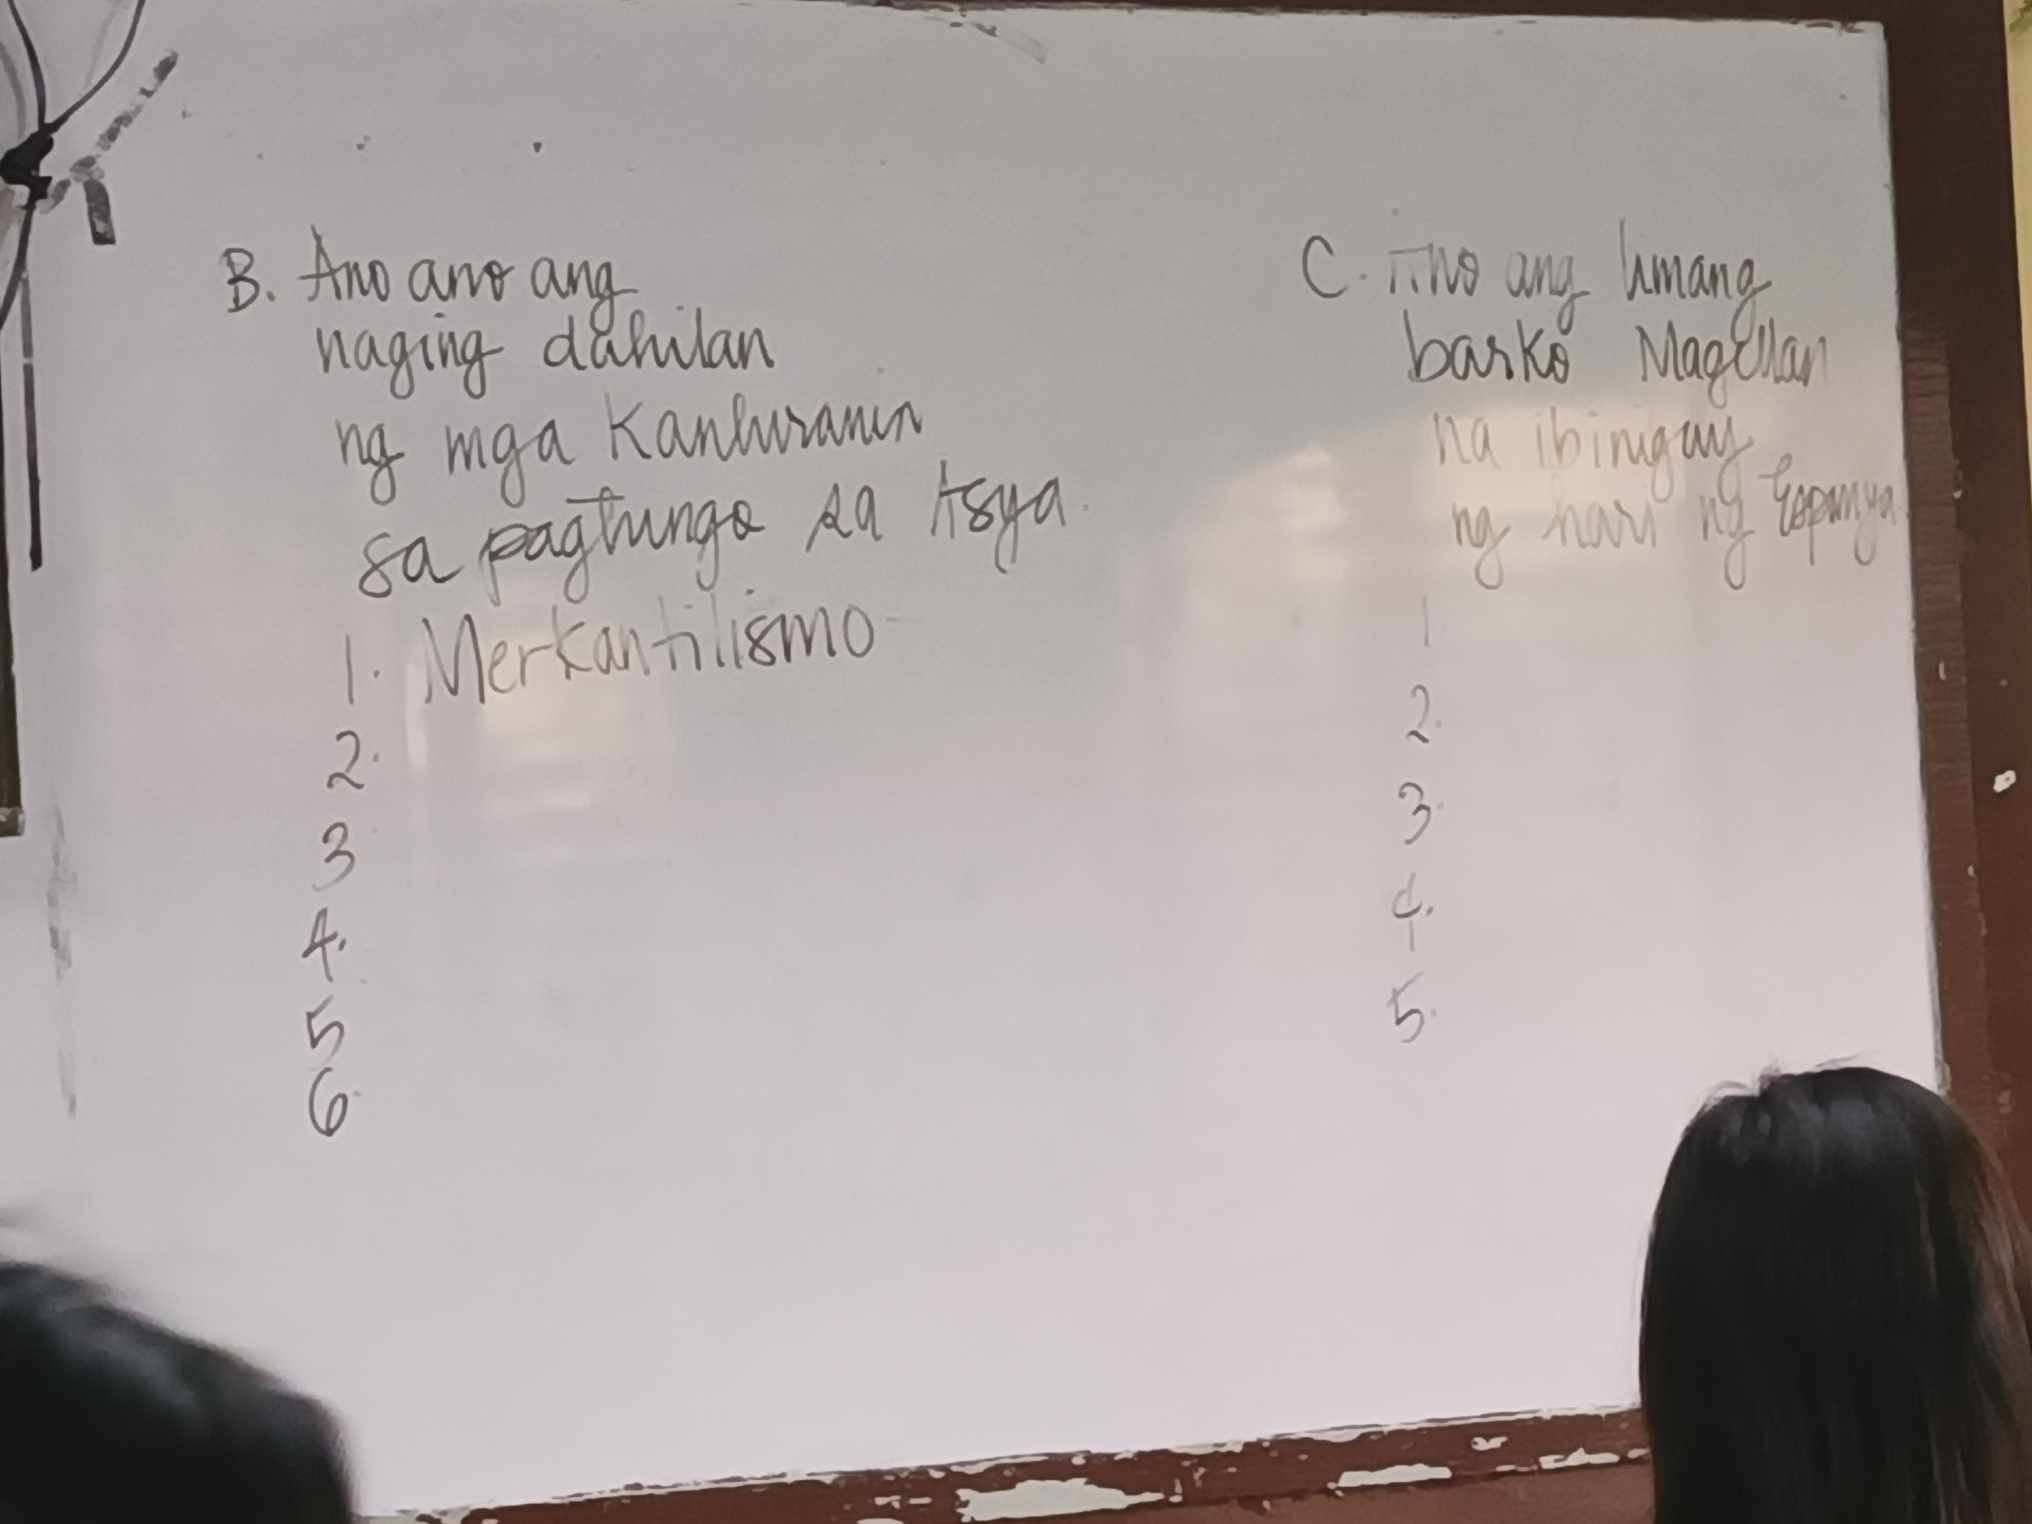 B. Ano ano ang
naging dahilan
ng mga Kanluranin
sa pagtungo sa Asya.
1. Merkantilismo
2.
3
4.
5
6.
C. Ano ang limang
barko Magellan
na ibinigay
ng hari ng Espanya
1
2.
3.
4.
5.